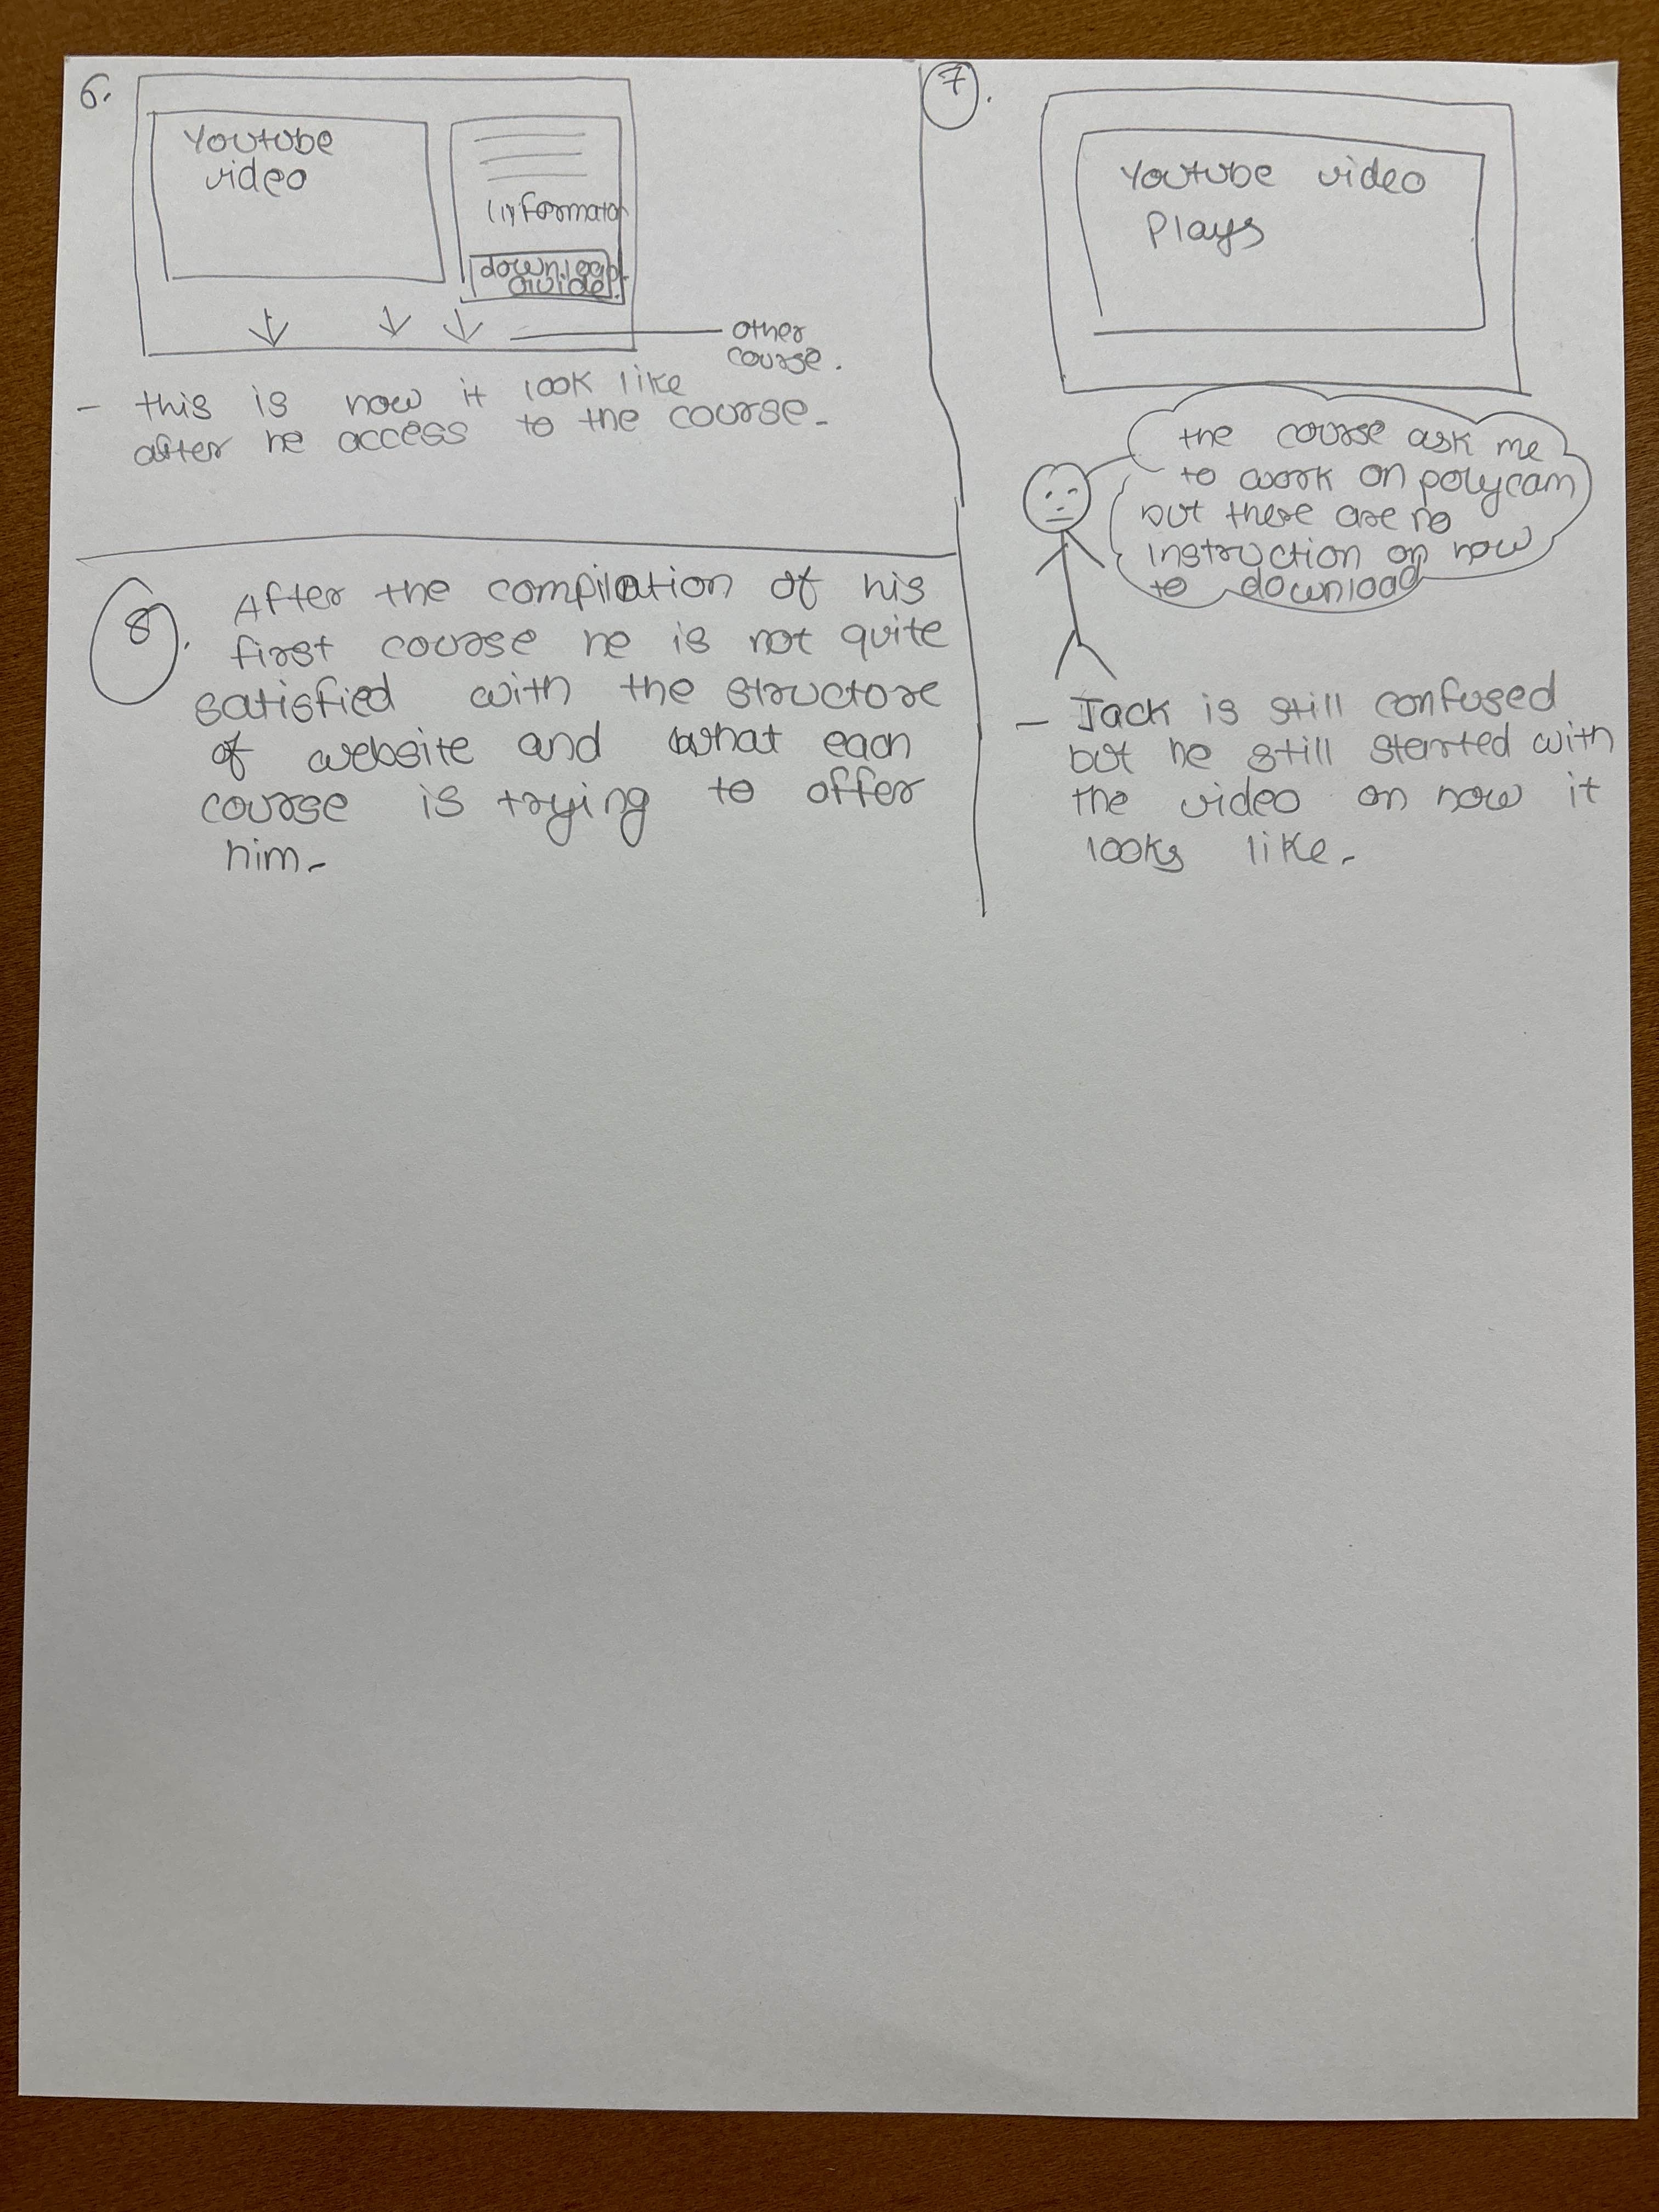 6.
Youtube
video
Informaton
download
Guide
other
course.
- this is how it look like
after he access to the course.
7.
Youtube video
Plays
the course ask me
to work on polycam
but there are no
instruction on how
to download
- Jack is still confused
but he still started with
the video on how it
looks like.
8. After the compilation of his
first course he is not quite
satisfied with the structure
of website and what each
course is trying to offer
him.